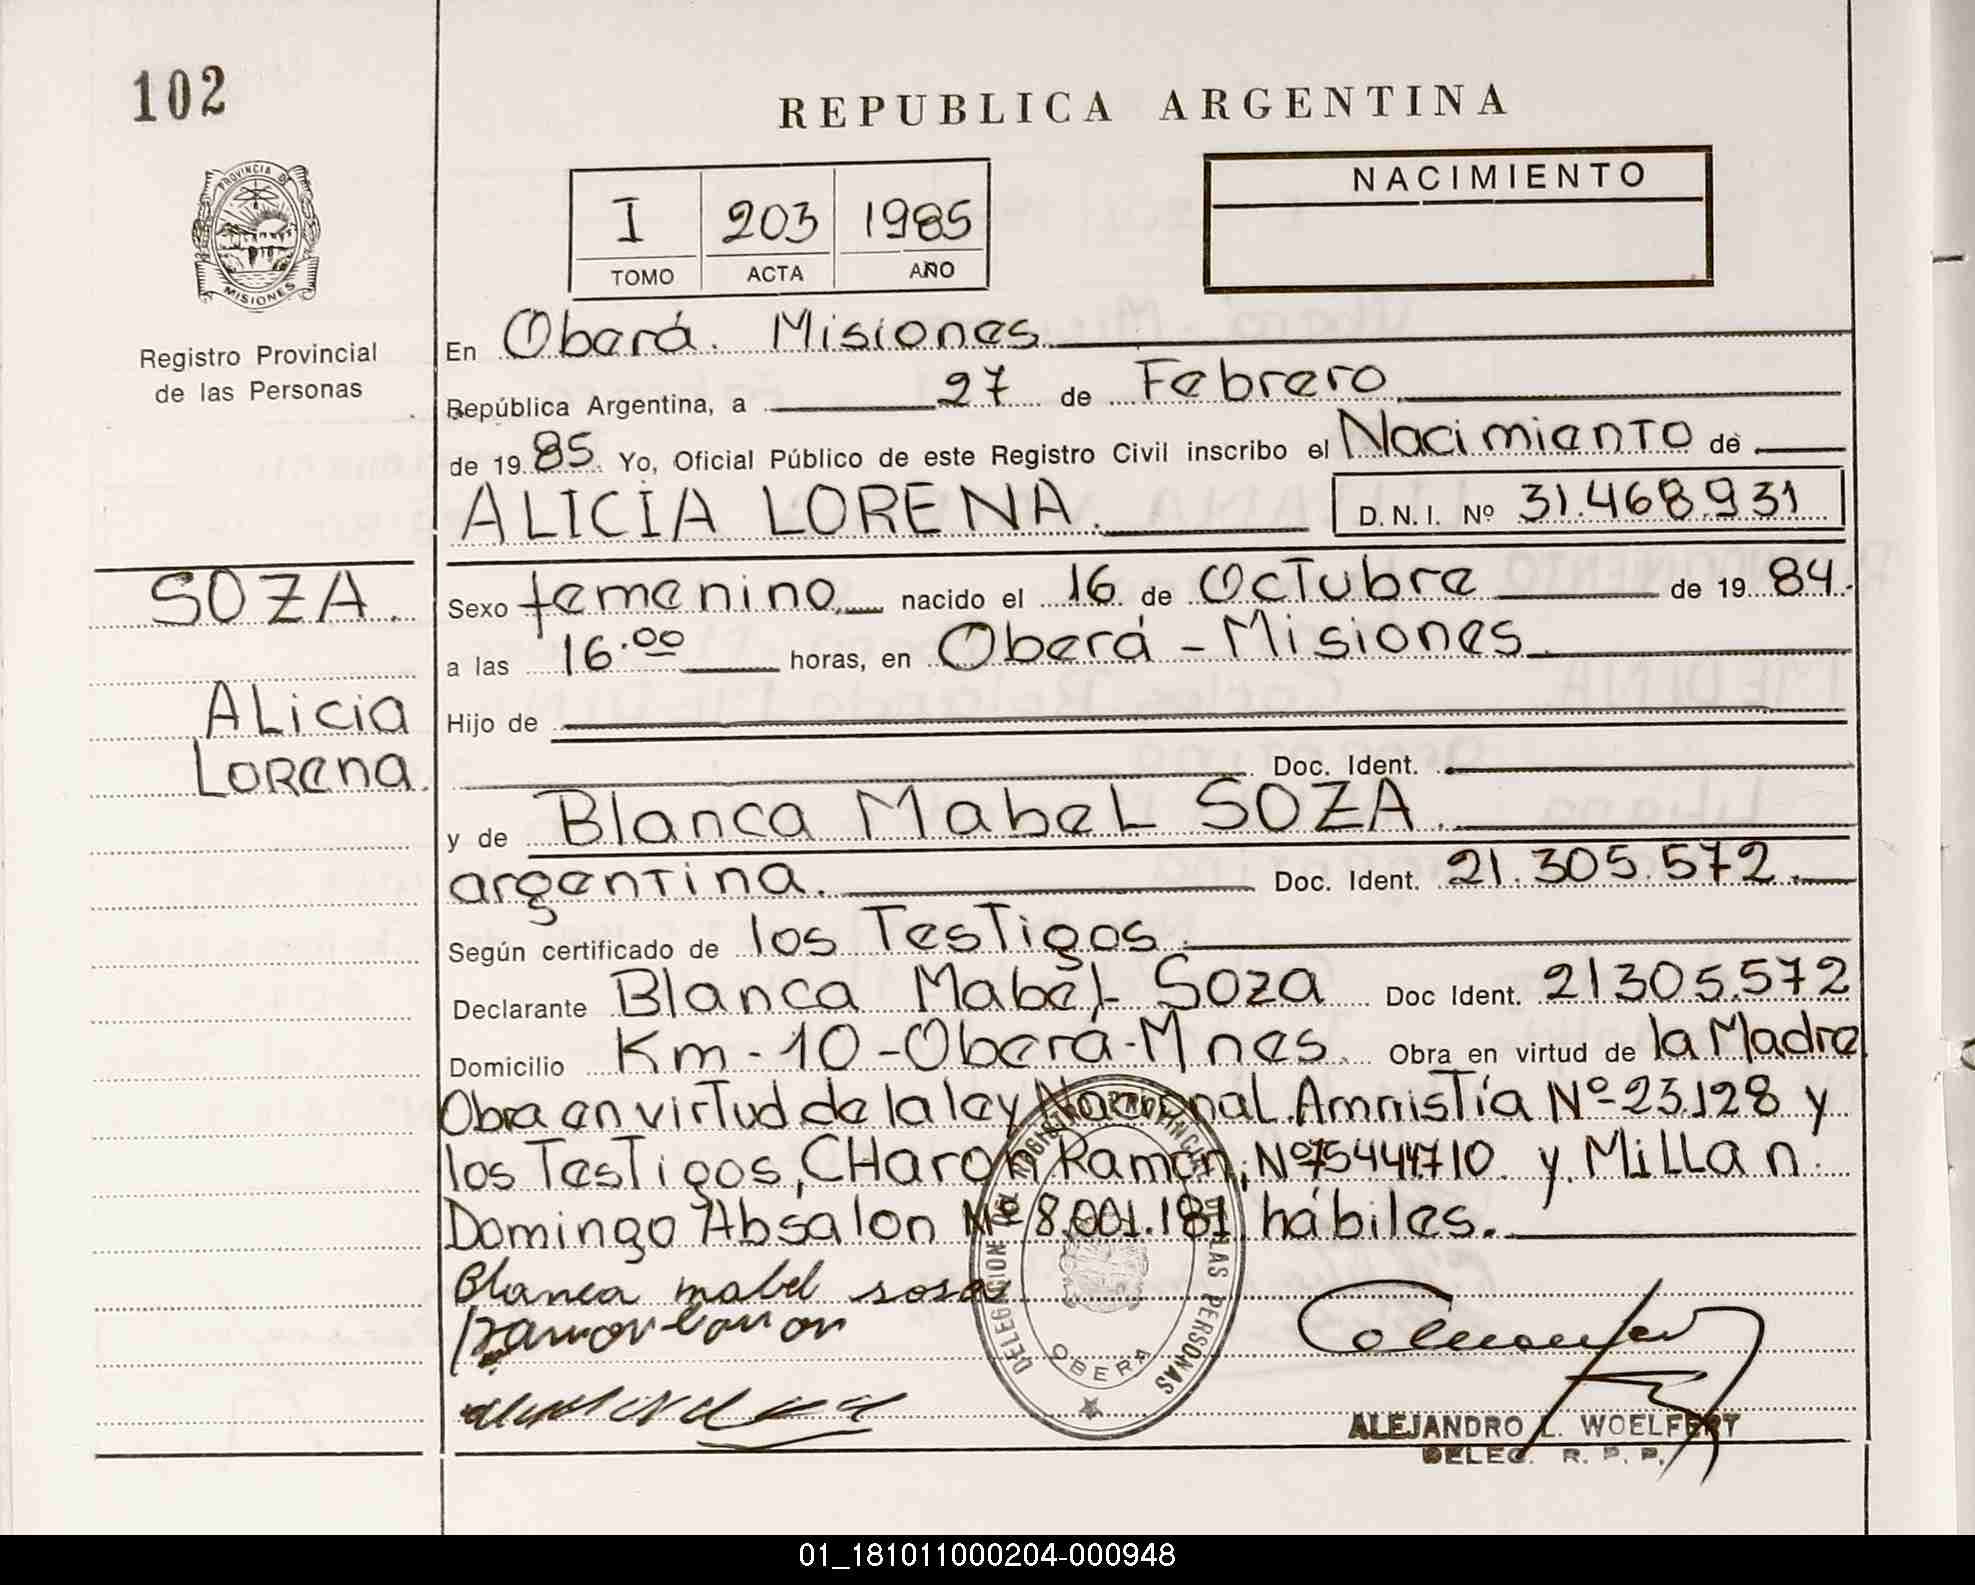 102
REPUBLICA ARGENTINA
PROVINCIA DE
MISIONES
Registro Provincial
de las Personas
NACIMIENTO
I 203 1985
TOMO ACTA AÑO
En Oberá. Misiones
República Argentina, a 27 de Febrero
de 19 85. Yo, Oficial Público de este Registro Civil inscribo el Nacimiento de
ALICIA LORENA. D.N.I. Nº 31.468.931
SOZA.
Alicia
Lorena.
Sexo femenino nacido el 16 de Octubre de 19 84.
a las 16.00 horas, en Oberá - Misiones
Hijo de
Doc. Ident.
y de Blanca Mabel SOZA.
argentina. Doc. Ident. 21.305.572.
Según certificado de los Testigos
Declarante Blanca Mabel Soza Doc Ident. 21305.572
Domicilio Km-10-Oberá-Mnes. Obra en virtud de la Madre
Obra en virtud de la ley Nacional Amnistía Nº 23.128 y
los Testigos, Ramón, y Millan
Domingo Absalon Nº 8.001.181 hábiles.
Blanca mabel sosa
DELEGACION REGISTRO PROVINCIAL DE LAS PERSONAS
OBERA
ALEJANDRO L. WOELFERT
DELEG. R. P. P.
01_181011000204-000948